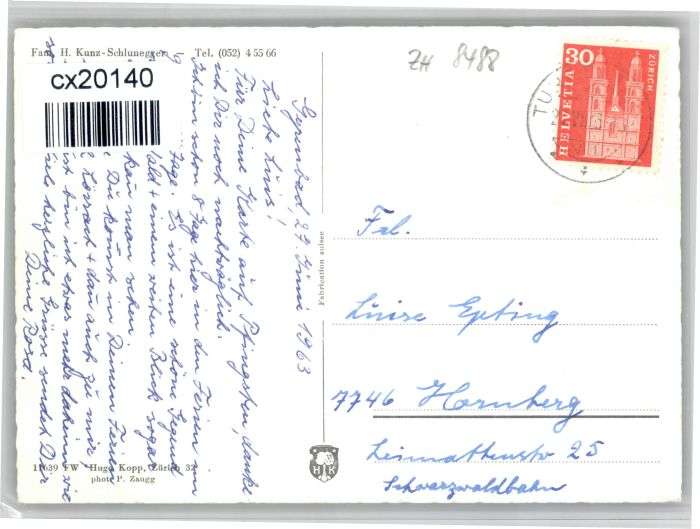 Fam. H. Kunz-Schlunegger Tel. (052) 4 55 66
cx20140
ZH 8488
30
HELVETIA
ZÜRICH
TU
Gyrenbad, 29. Juni 1963
Liebe Luise!
Für Deine Karte auf Pfingsten, danke
ich Dir noch nachträglich.
schon 8 Tage hier in den Ferien im
Tage. Es ist eine schöne Gegend
Wald + einen weiten Blick sogar
man sehen.
Du kommst in Deinen Ferien
Lörrach + dan auch zu mir
bin ich etwas mehr daheim wie
herzliche Grüsse sendet Dir
Deine Rosa.
Fabrication suisse
Frl.
Luise Epting
7746 Hornberg
Leimattenstr 25
Schwarzwaldbahn
HK
11639 FW Hugo Kopp, Zürich 32
photo P. Zaugg